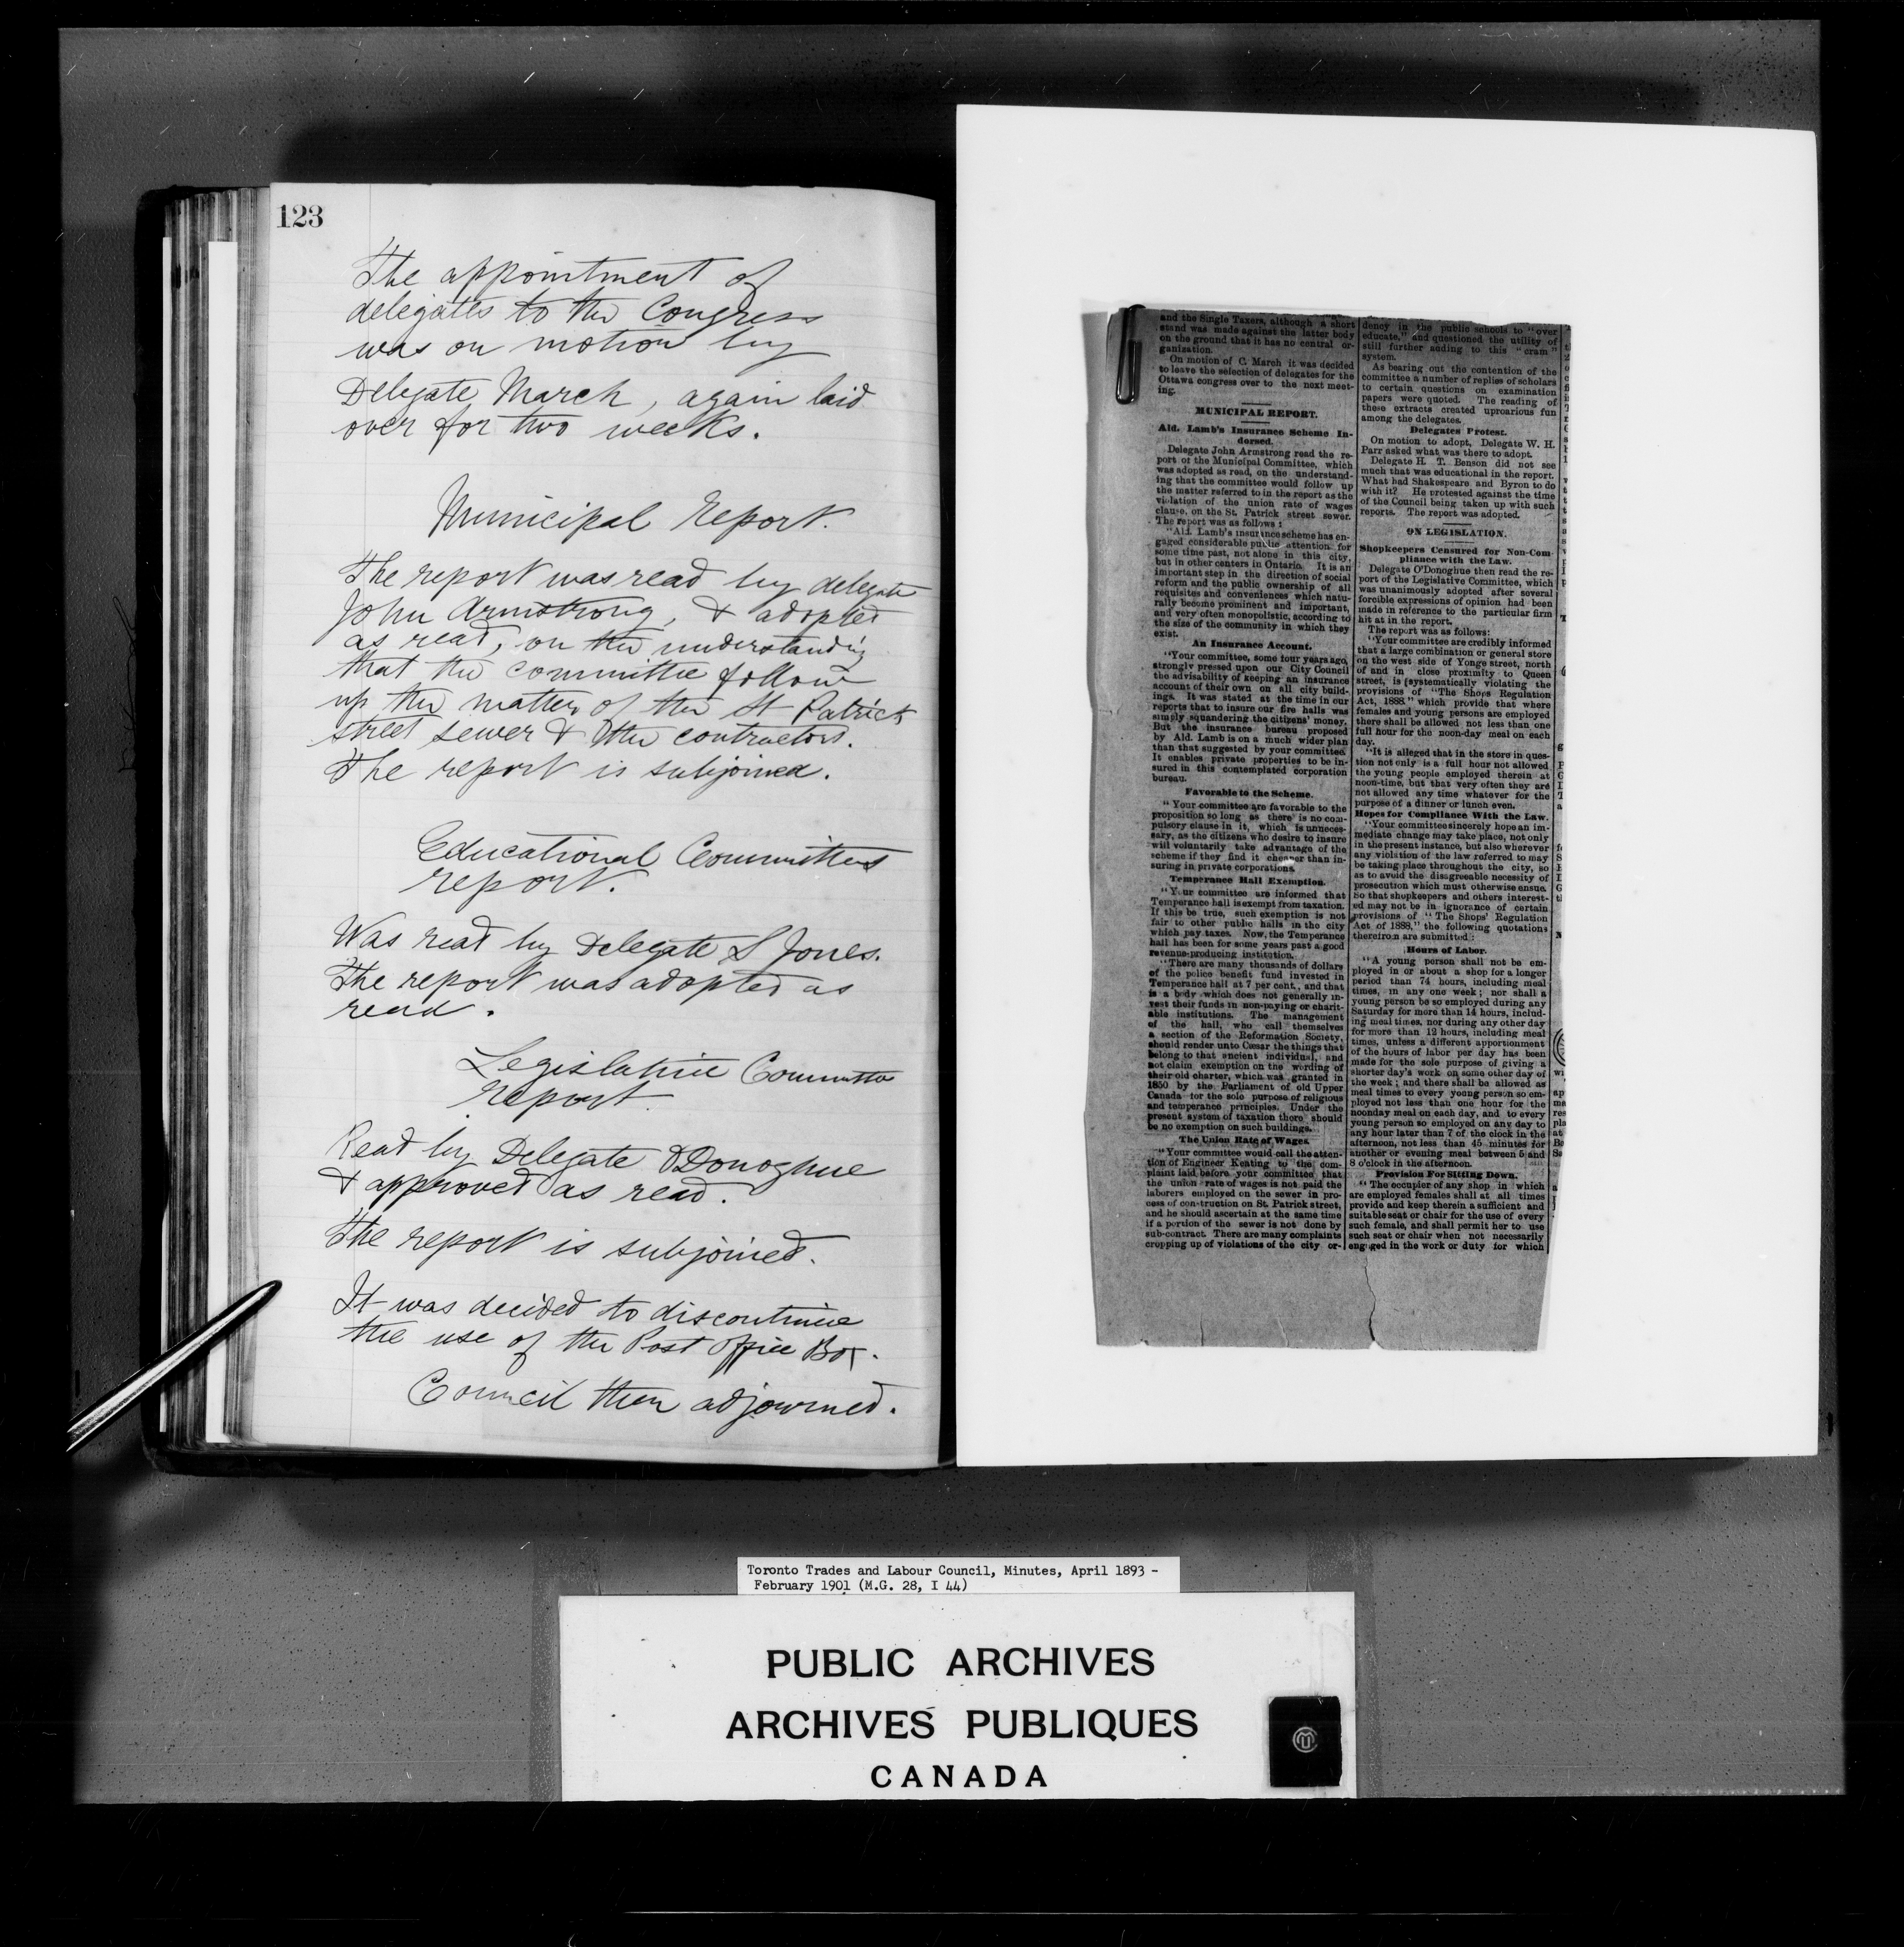 123
The appointment of
delegates to the Congress
was on motion by
Delegate March, again laid
over for two weeks.
Municipal Report.
The report was read by delegate
John Armstrong, & adopted
as read, on the understanding
that the committee follow
up the matter of the St Patrick
street sewer & the contractors.
The report is subjoined.
Educational Committees
report.
Was read by Delegate S Jones.
The report was adopted as
read.
Legislative Committee
report
Read by Delegate O'Donoghue
& approved as read.
The report is subjoined.
It was decided to discontinue
the use of the Post Office Box.
Council then adjourned.
and the Single Taxers, although a short
stand was made against the latter body
on the ground that it has no central or-
ganization.
On motion of C. March it was decided
to leave the selection of delegates for the
Ottawa congress over to the next meet-
ing.
MUNICIPAL REPORT.
Ald. Lamb's Insurance Scheme In-
dorsed.
Delegate John Armstrong read the re-
port of the Municipal Committee, which
was adopted as read, on the understand-
ing that the committee would follow up
the matter referred to in the report as the
violation of the union rate of wages
clause, on the St. Patrick street sewer.
The report was as follows:
"Ald. Lamb's insurance scheme has en-
gaged considerable public attention for
some time past, not alone in this city,
but in other centers in Ontario. It is an
important step in the direction of social
reform and the public ownership of all
requisites and conveniences which natu-
rally become prominent and important,
and very often monopolistic, according to
the size of the community in which they
exist.
An Insurance Account.
"Your committee, some four years ago,
strongly pressed upon our City Council
the advisability of keeping an insurance
account of their own on all city build-
ings. It was stated at the time in our
reports that to insure our fire halls was
simply squandering the citizens' money.
But the insurance bureau proposed
by Ald. Lamb is on a much wider plan
than that suggested by your committee.
It enables private properties to be in-
sured in this contemplated corporation
bureau.
Favorable to the Scheme.
"Your committee are favorable to the
proposition so long as there is no com-
pulsory clause in it, which is unneces-
sary, as the citizens who desire to insure
will voluntarily take advantage of the
scheme if they find it cheaper than in-
suring in private corporations.
Temperance Hall Exemption.
"Your committee are informed that
Temperance hall is exempt from taxation.
If this be true, such exemption is not
fair to other public halls in the city
which pay taxes. Now, the Temperance
hall has been for some years past a good
revenue-producing institution.
"There are many thousands of dollars
of the police benefit fund invested in
Temperance hall at 7 per cent., and that
is a body which does not generally in-
vest their funds in non-paying or charit-
able institutions. The management
of the hall, who call themselves
a section of the Reformation Society,
should render unto Cæsar the things that
belong to that ancient individual, and
not claim exemption on the wording of
their old charter, which was granted in
1850 by the Parliament of old Upper
Canada for the sole purpose of religious
and temperance principles. Under the
present system of taxation there should
be no exemption on such buildings.
The Union Rate of Wages.
"Your committee would call the atten-
tion of Engineer Keating to the com-
plaint laid before your committee that
the union rate of wages is not paid the
laborers employed on the sewer in pro-
cess of construction on St. Patrick street,
and he should ascertain at the same time
if a portion of the sewer is not done by
sub-contract. There are many complaints
cropping up of violations of the city or-
dency in the public schools to "over
educate," and questioned the utility of
still further adding to this "cram"
system.
As bearing out the contention of the
committee a number of replies of scholars
to certain questions on examination
papers were quoted. The reading of
these extracts created uproarious fun
among the delegates.
Delegates Protest.
On motion to adopt, Delegate W. H.
Parr asked what was there to adopt.
Delegate H. T. Benson did not see
much that was educational in the report.
What had Shakespeare and Byron to do
with it? He protested against the time
of the Council being taken up with such
reports. The report was adopted.
ON LEGISLATION.
Shopkeepers Censured for Non-Com-
pliance with the Law.
Delegate O'Donoghue then read the re-
port of the Legislative Committee, which
was unanimously adopted after several
forcible expressions of opinion had been
made in reference to the particular firm
hit at in the report.
The report was as follows:
"Your committee are credibly informed
that a large combination or general store
on the west side of Yonge street, north
of and in close proximity to Queen
street, is systematically violating the
provisions of "The Shops Regulation
Act, 1888," which provide that where
females and young persons are employed
there shall be allowed not less than one
full hour for the noon-day meal on each
day.
"It is alleged that in the store in ques-
tion not only is a full hour not allowed
the young people employed therein at
noon-time, but that very often they are
not allowed any time whatever for the
purpose of a dinner or lunch even.
Hopes for Compliance With the Law.
"Your committee sincerely hope an im-
mediate change may take place, not only
in the present instance, but also wherever
any violation of the law referred to may
be taking place throughout the city, so
as to avoid the disagreeable necessity of
prosecution which must otherwise ensue.
So that shopkeepers and others interest-
ed may not be in ignorance of certain
provisions of "The Shops' Regulation
Act of 1888," the following quotations
therefrom are submitted:
Hours of Labor.
"A young person shall not be em-
ployed in or about a shop for a longer
period than 74 hours, including meal
times, in any one week; nor shall a
young person be so employed during any
Saturday for more than 14 hours, includ-
ing meal times, nor during any other day
for more than 12 hours, including meal
times, unless a different apportionment
of the hours of labor per day has been
made for the sole purpose of giving a
shorter day's work on some other day of
the week; and there shall be allowed as
meal times to every young person so em-
ployed not less than one hour for the
noonday meal on each day, and to every
young person so employed on any day to
any hour later than 7 of the clock in the
afternoon, not less than 45 minutes for
another or evening meal between 5 and
8 o'clock in the afternoon.
Provision For Sitting Down.
"The occupier of any shop in which
are employed females shall at all times
provide and keep therein a sufficient and
suitable seat or chair for the use of every
such female, and shall permit her to use
such seat or chair when not necessarily
engaged in the work or duty for which
Toronto Trades and Labour Council, Minutes, April 1893 -
February 1901 (M.G. 28, I 44)
PUBLIC ARCHIVES
ARCHIVES PUBLIQUES
CANADA